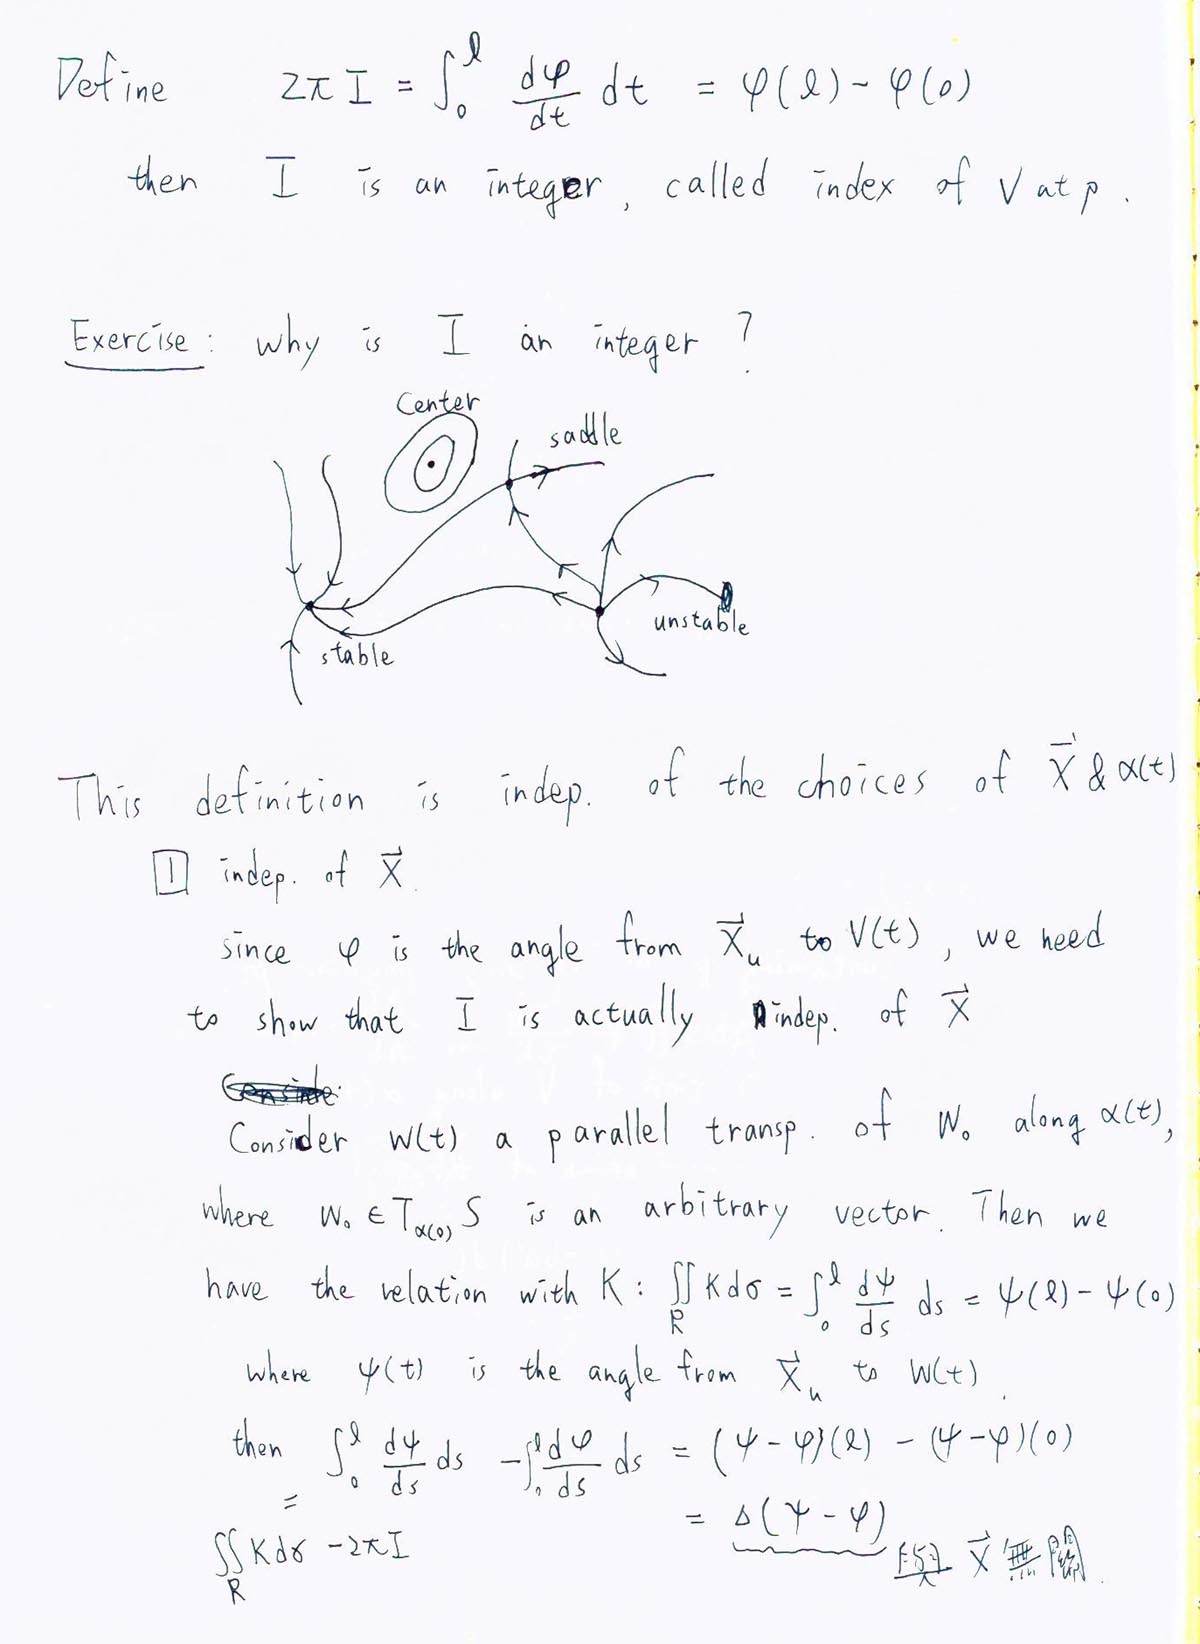 Define 2π I = ∫₀ˡ dφ/dt dt = φ(l) - φ(0)
then I is an integer, called index of V at p.
Exercise: why is I an integer?
Center
saddle
unstable
stable
This definition is indep. of the choices of X⃗ & α(t)
1 indep. of X⃗.
since φ is the angle from X⃗ᵤ to V(t), we need
to show that I is actually indep. of X⃗
Consider W(t) a parallel transp. of W₀ along α(t),
where W₀ ∈ T_α(0) S is an arbitrary vector. Then we
have the relation with K: ∬_R K dσ = ∫₀ˡ dψ/ds ds = ψ(l) - ψ(0)
where ψ(t) is the angle from X⃗ᵤ to W(t).
then ∫₀ˡ dψ/ds ds - ∫₀ˡ dφ/ds ds = (ψ - φ)(l) - (ψ - φ)(0)
= = Δ(ψ - φ)
∬_R K dσ - 2π I 與 X⃗ 無關.